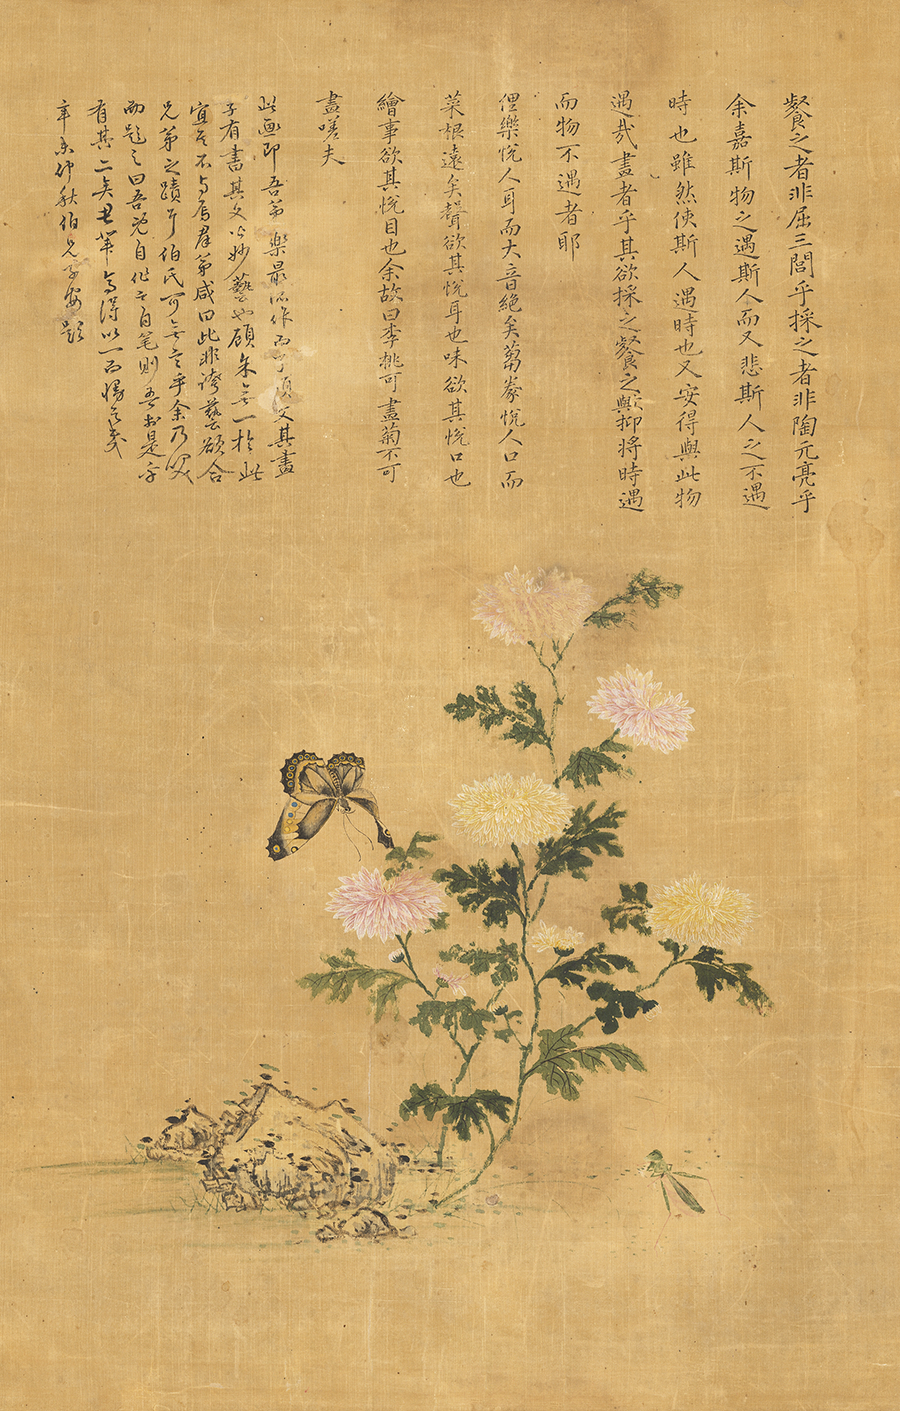 餐之者非屈三閭乎採之者非陶元亮乎
余嘉斯物之遇斯人而又悲斯人之不遇
時也雖然使斯人遇時也又安得與此物
遇哉畫者乎其欲採之餐之歟抑將時遇
而物不遇者耶
俚樂悅人耳而大音絕矣蒭豢悅人口而
菜根遠矣聲欲其悅耳也味欲其悅口也
繪事欲其悅目也余故曰李桃可畫菊不可
畫嗟夫
此画即吾弟 樂最所作而
子有書其文皆妙藝也顧朱 一於此
宜 不 群弟咸曰此非誇藝欲合
兄弟之蹟 伯氏可 乎余乃
而題之曰吾 自作 自笔則 是乎
有其二矣 得以一而
辛未仲秋伯兄子安題